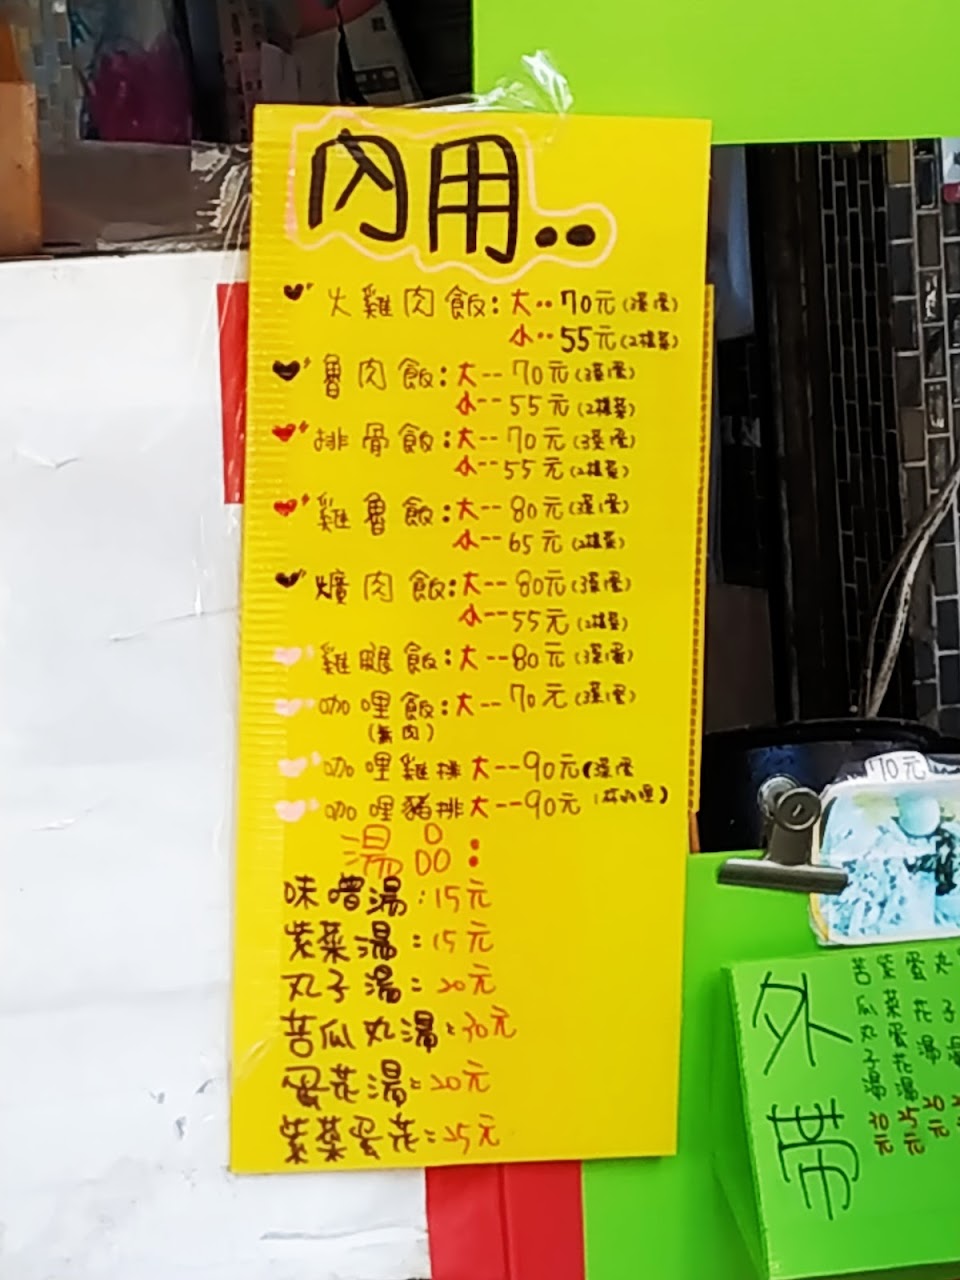 內用..
火雞肉飯:大..70元(3菜1蛋)
小..55元(2樣菜)
魯肉飯:大--70元(3菜1蛋)
小--55元(2樣菜)
排骨飯:大--70元(3菜1蛋)
小--55元(2樣菜)
雞魯飯:大--80元(3菜1蛋)
小--65元(2樣菜)
爌肉飯:大--80元(3菜1蛋)
小--55元(2樣菜)
雞腿飯:大--80元(3菜1蛋)
咖哩飯:大--70元(3菜1蛋)
(無肉)
咖哩雞排大--90元(3菜1蛋
咖哩豬排大--90元
湯品:
味噌湯:15元
紫菜湯:15元
丸子湯:20元
苦瓜丸湯:30元
蛋花湯:20元
紫菜蛋花:25元
70元
外帶
苦瓜丸子湯30元
紫菜蛋花湯25元
蛋花湯20元
丸子湯